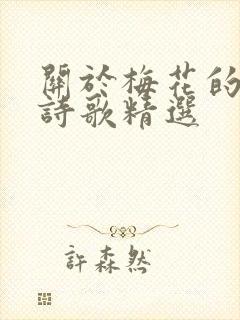 關於梅花的
詩歌精選
許森然